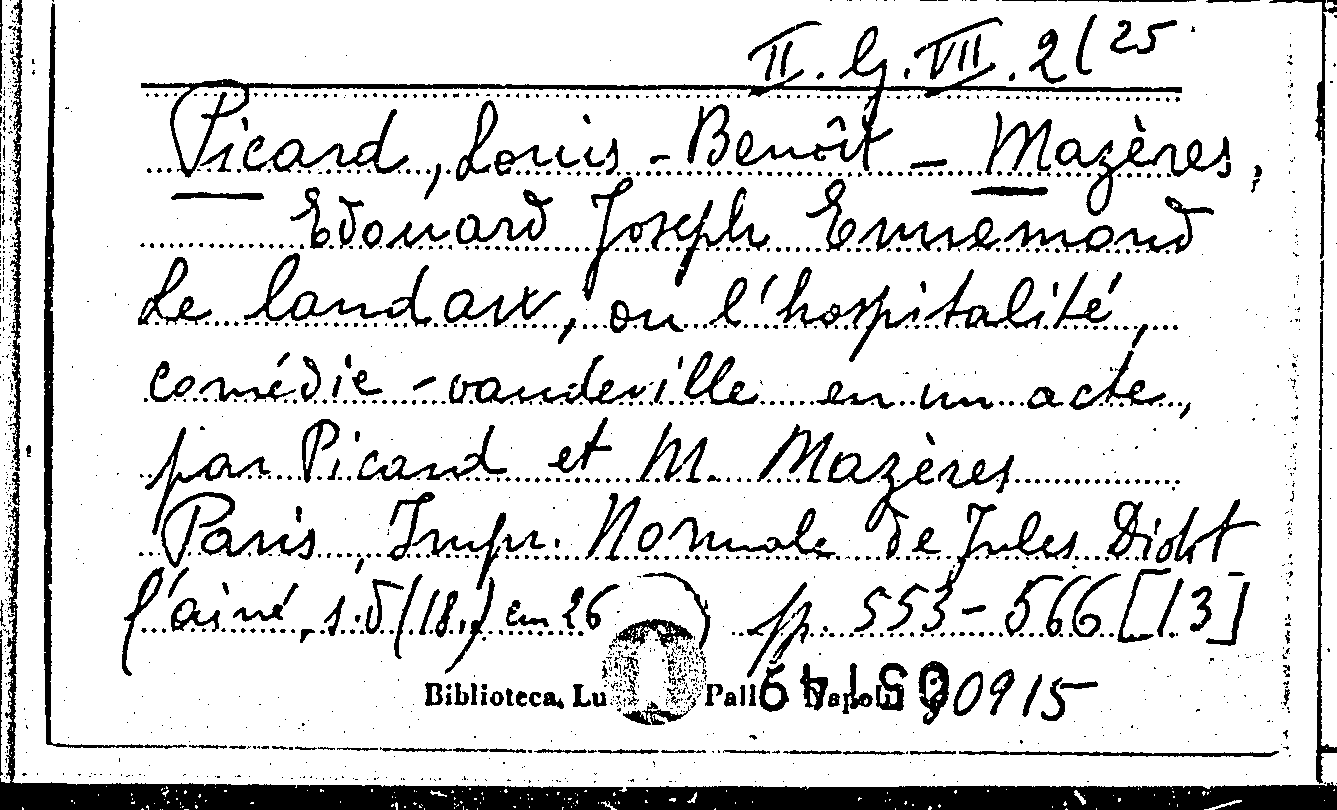 II. G. VII. 2/25
Picard, Louis-Benoît – Mazères,
Edouard Joseph Ennemond
Le landaw, ou l'hospitalité,
comédie-vaudeville en un acte,
par Picard et M. Mazères
Paris, Impr. Normale de Jules Didot
l'ainé, s.d. (18..) cm 26 pp. 553-566 [13]
Biblioteca, Lu Pall 90915